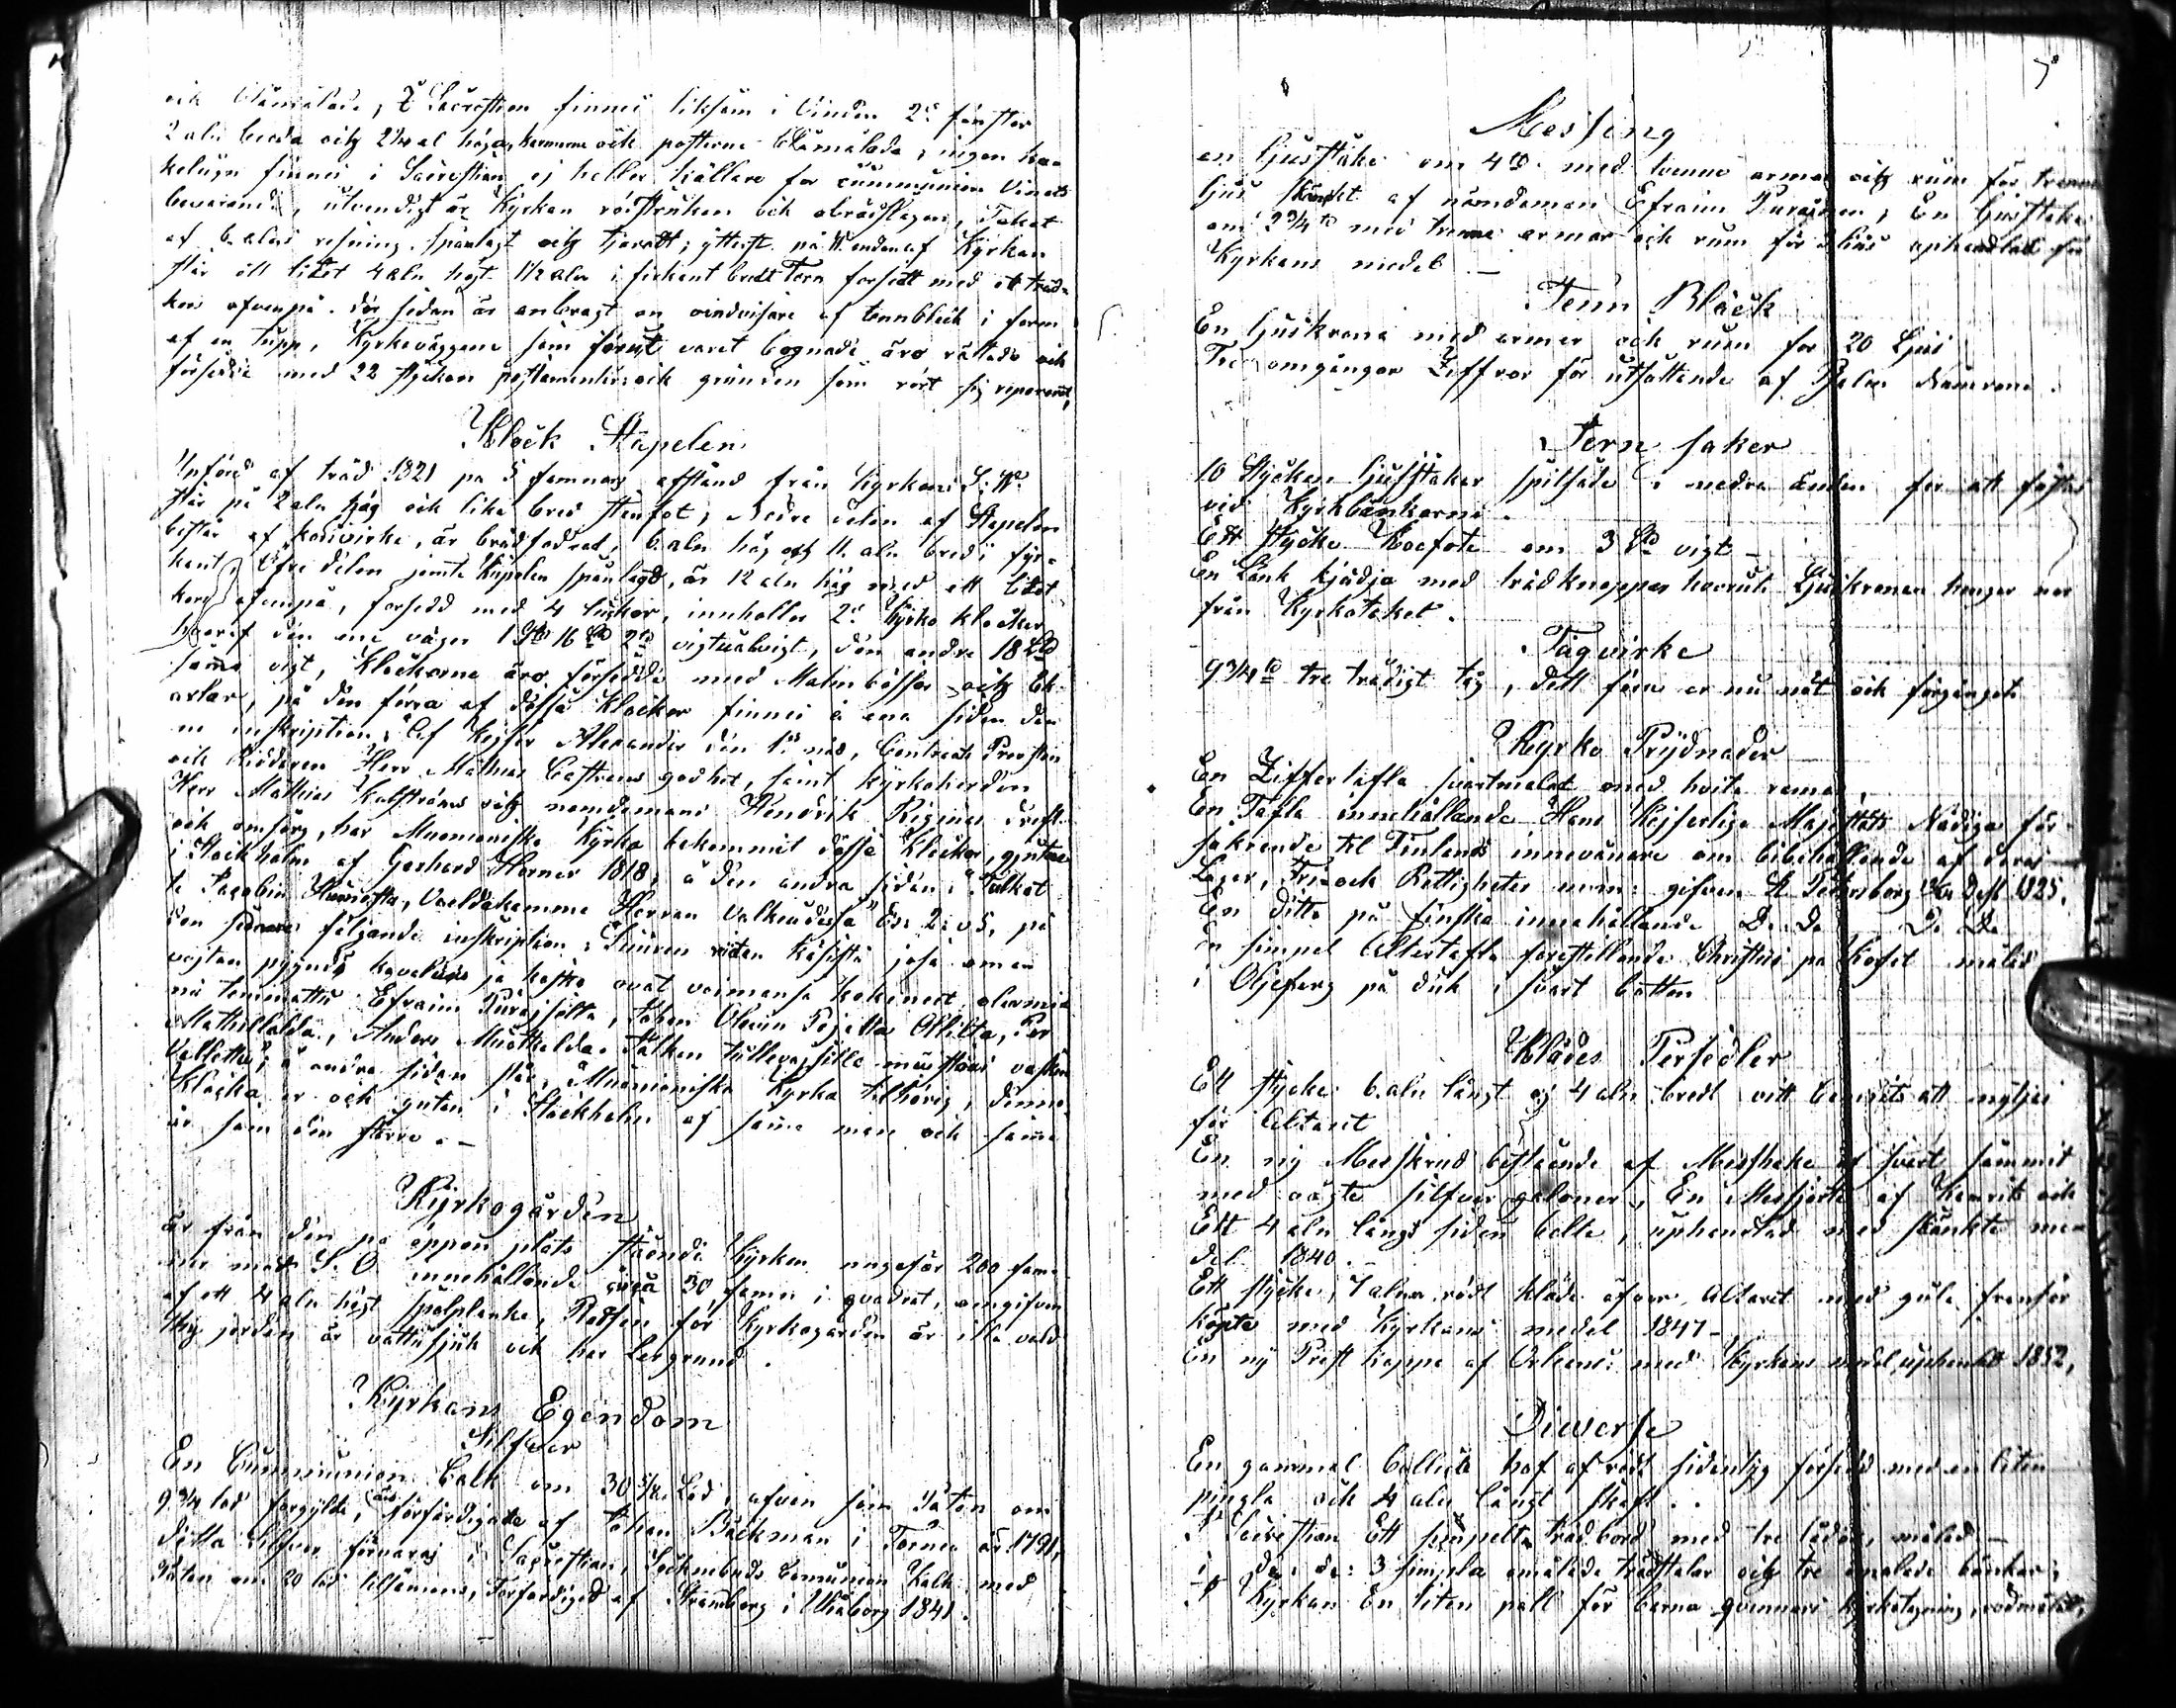 och blåmålade, I Sacristian finnes liksom i Vinden 2ne fönster
2 aln breda och 2¼ al höga, karmarne och posterne blåmålade, ingen ka=
kelugn finnes i Sacristian ej heller källare för communion Vinets
bevarande, utvendigt är Kyrkan rödstruken och obrädslagen, Taket
af 6 alns resning spånlagt och tjäratt; ytterst på W. enden af Kyrkan
står ett litet 4 aln högt 1½ aln i firkent bredt Torn försedt med ett träd=
kors ofvanpå. der jedan är anbragt en vindvisare af tennbleck i form
af en tupp, Kyrkoväggarne som förut varet bognade äro rättade och
försedde med 22 stycken postamenter och grunden som rört sig reparerat,
Klock Stapelen
Upförd af träd 1821 på 5 famnars afstånd från Kyrkans S. W.
står på 2 aln hög och lika bred stenfot, Nedre delen af Stapelen
består af korsvirke, är brädfodrad, 6 aln hög och 11 aln bred i fyr=
kant, Öfre delen jemte Kupolen spånlagd, är 12 aln hög med ett litet
kors ofvanpå, försedd med 4 luckor, innholler 2ne Kyrko klockor
hvaraf den ene väger 1 S℔ 16 L℔ 2 ℔ vigtualvigt, den andra 18 L℔
samma vigt, Klockorne äro försedde med Malmbössor och Ek=
axlar, på den förra af dessa klockor finnes å ena sidan den=
na inskription: Af Kejser Alexander den 1es nåd, Contracts Prosten
och Riddaren Herr Mathias Castrens godhet, samt kyrkoherden
Herr Mathias Kolströms och nemndemans Hendrik Regina drift
och omsorg, har Muonioniska Kyrko bekommit dessa klockor, gjutne
i Stockholm af Gerhard Horner 1818, å den andra sidan: Tulkat
te Jacobin Huoneesta, Vaeldakamme Herran Valkeudessa Es: 2: v 5, på
den sednare följande inskription:
Mathillalda, Anders
å andra sidan står, Muonioniska Kyrka tilhörig, denna
klocka er och guten i Stockholm af samma man och samma
år som den förra.–
Kyrkogården
är från den på öppen plats stående Kyrkan ungefär 200 fam=
nar mot S. O. innehållande circa 30 famn i qvadrat, omgifven
af ett 4 aln högt spolplanke, Platsen för Kyrkogården är illa vald
thy jorden är vattusjuk och har lergrund.
Kyrkans Egendom
Silfver
En Communion Calk om 30 5/12 Lod, äfven som Paten om
9¾ lod förgylda, äro förfärdigade af Johan Bäckman i Torneå år 1791,
detta Silfver förvaras i Sacristian, Sockenbuds Comunion Kalk med
Paten om 20 lod tilsamans, Förfärdiged af Strömborg i Uleåborg 1841.
Messing
en ljusstake om 4 ℔ med tvenne armar och rum för trenne
ljus skänkt af nämdeman Efraim Puranen, En ljusstake
om 2¾ ℔ med trenne armar och rum för ljus uphandlad för
Kyrkans medel –
Tenn Bläck
En ljuskrona med armar och rum for 20 Ljus
Tre omgångar Ziffror för utsättande af Psalm Numrorne.
Jern saker
10 Stycken ljusstakar spitsade i nedra ändan for att fästas
vid Kyrkbänkarne.
Ett stycke Koefote om 3 L℔ vigt –
En Länk kjädja med trädknoppar hvarvid Ljuskronan hänger ner
från Kyrkotaket.
Tågvirke
9¾ ℔ tre trådigt tåg, dett samma er nu nöt och förgånget
Kyrko Prydnader
En Ziffertafla svartmalat med hvita ramar,
En Tafla innehållande Hans Kejserliga Majestäts Nådiga för=
säkrande til Finlands innevånare om bibehållande af deras
Lagar, Fri= och Rättigheter m:m: gifven St Petersborg Dess 1825.
En ditto på finska innehållande D: Do D: Do
En simpel Altertafla föreställande Christus på Korset målad
i Oljeferg på duk i svart botten
Klädes Persedlar
Ett stycke 6 aln långt och 4 aln bredt vitt att nytjas
för Altaret
En ny Messkrud bestående af Messhake af svart sammit
med oägta silfver galoner, En Messjorta af Kamrik och
Ett 4 aln långt siden bälte, uphandlad med skänkta me=
del 1840.–
Ett stycke, 7 alnar rödt kläde öfver Altaret med gula fransar
köpte med Kyrkans medel 1847 –
En ny Prest kappa af Orleans med Kyrkans medel uphandlat 1852,
Diverse
En gammal Collect haf af rödt sidentyg försedd med en liten
pingla och 4 aln långt skaft..
I Sacristian Ett simpelt träd bord med tre lådor, målad –
i do: do: 3 simpla omålade trädstolar och tre omålade bänkar;
I Kyrkan En liten pall för barna qvinnors Kyrkotagning, rödmålat,